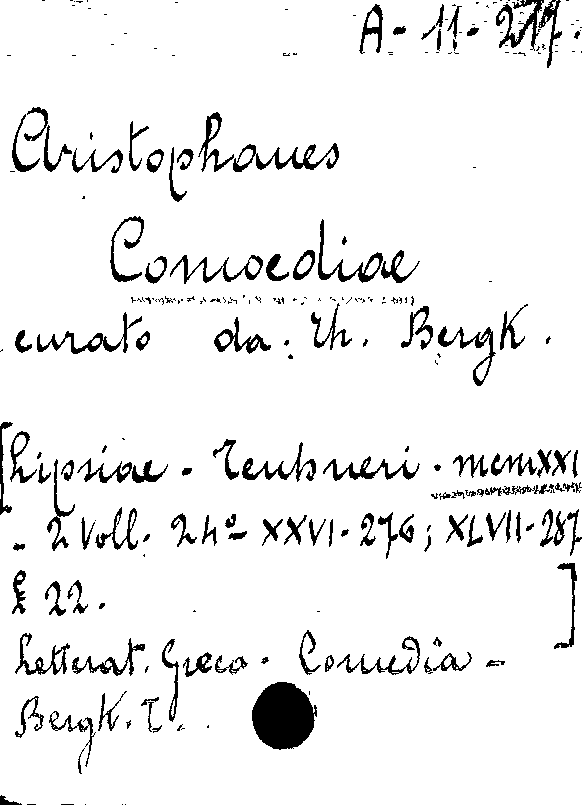 A - 11 - 217.
Aristophanes
Comoediae
curato da: Th. Bergk.
[Lipsiae - Teubneri - MCMXXI
- 2 Voll. 24º - XXVI - 276; XLVII - 287
£ 22. ]
Letterat. Greca - Comedia -
Bergk. T.